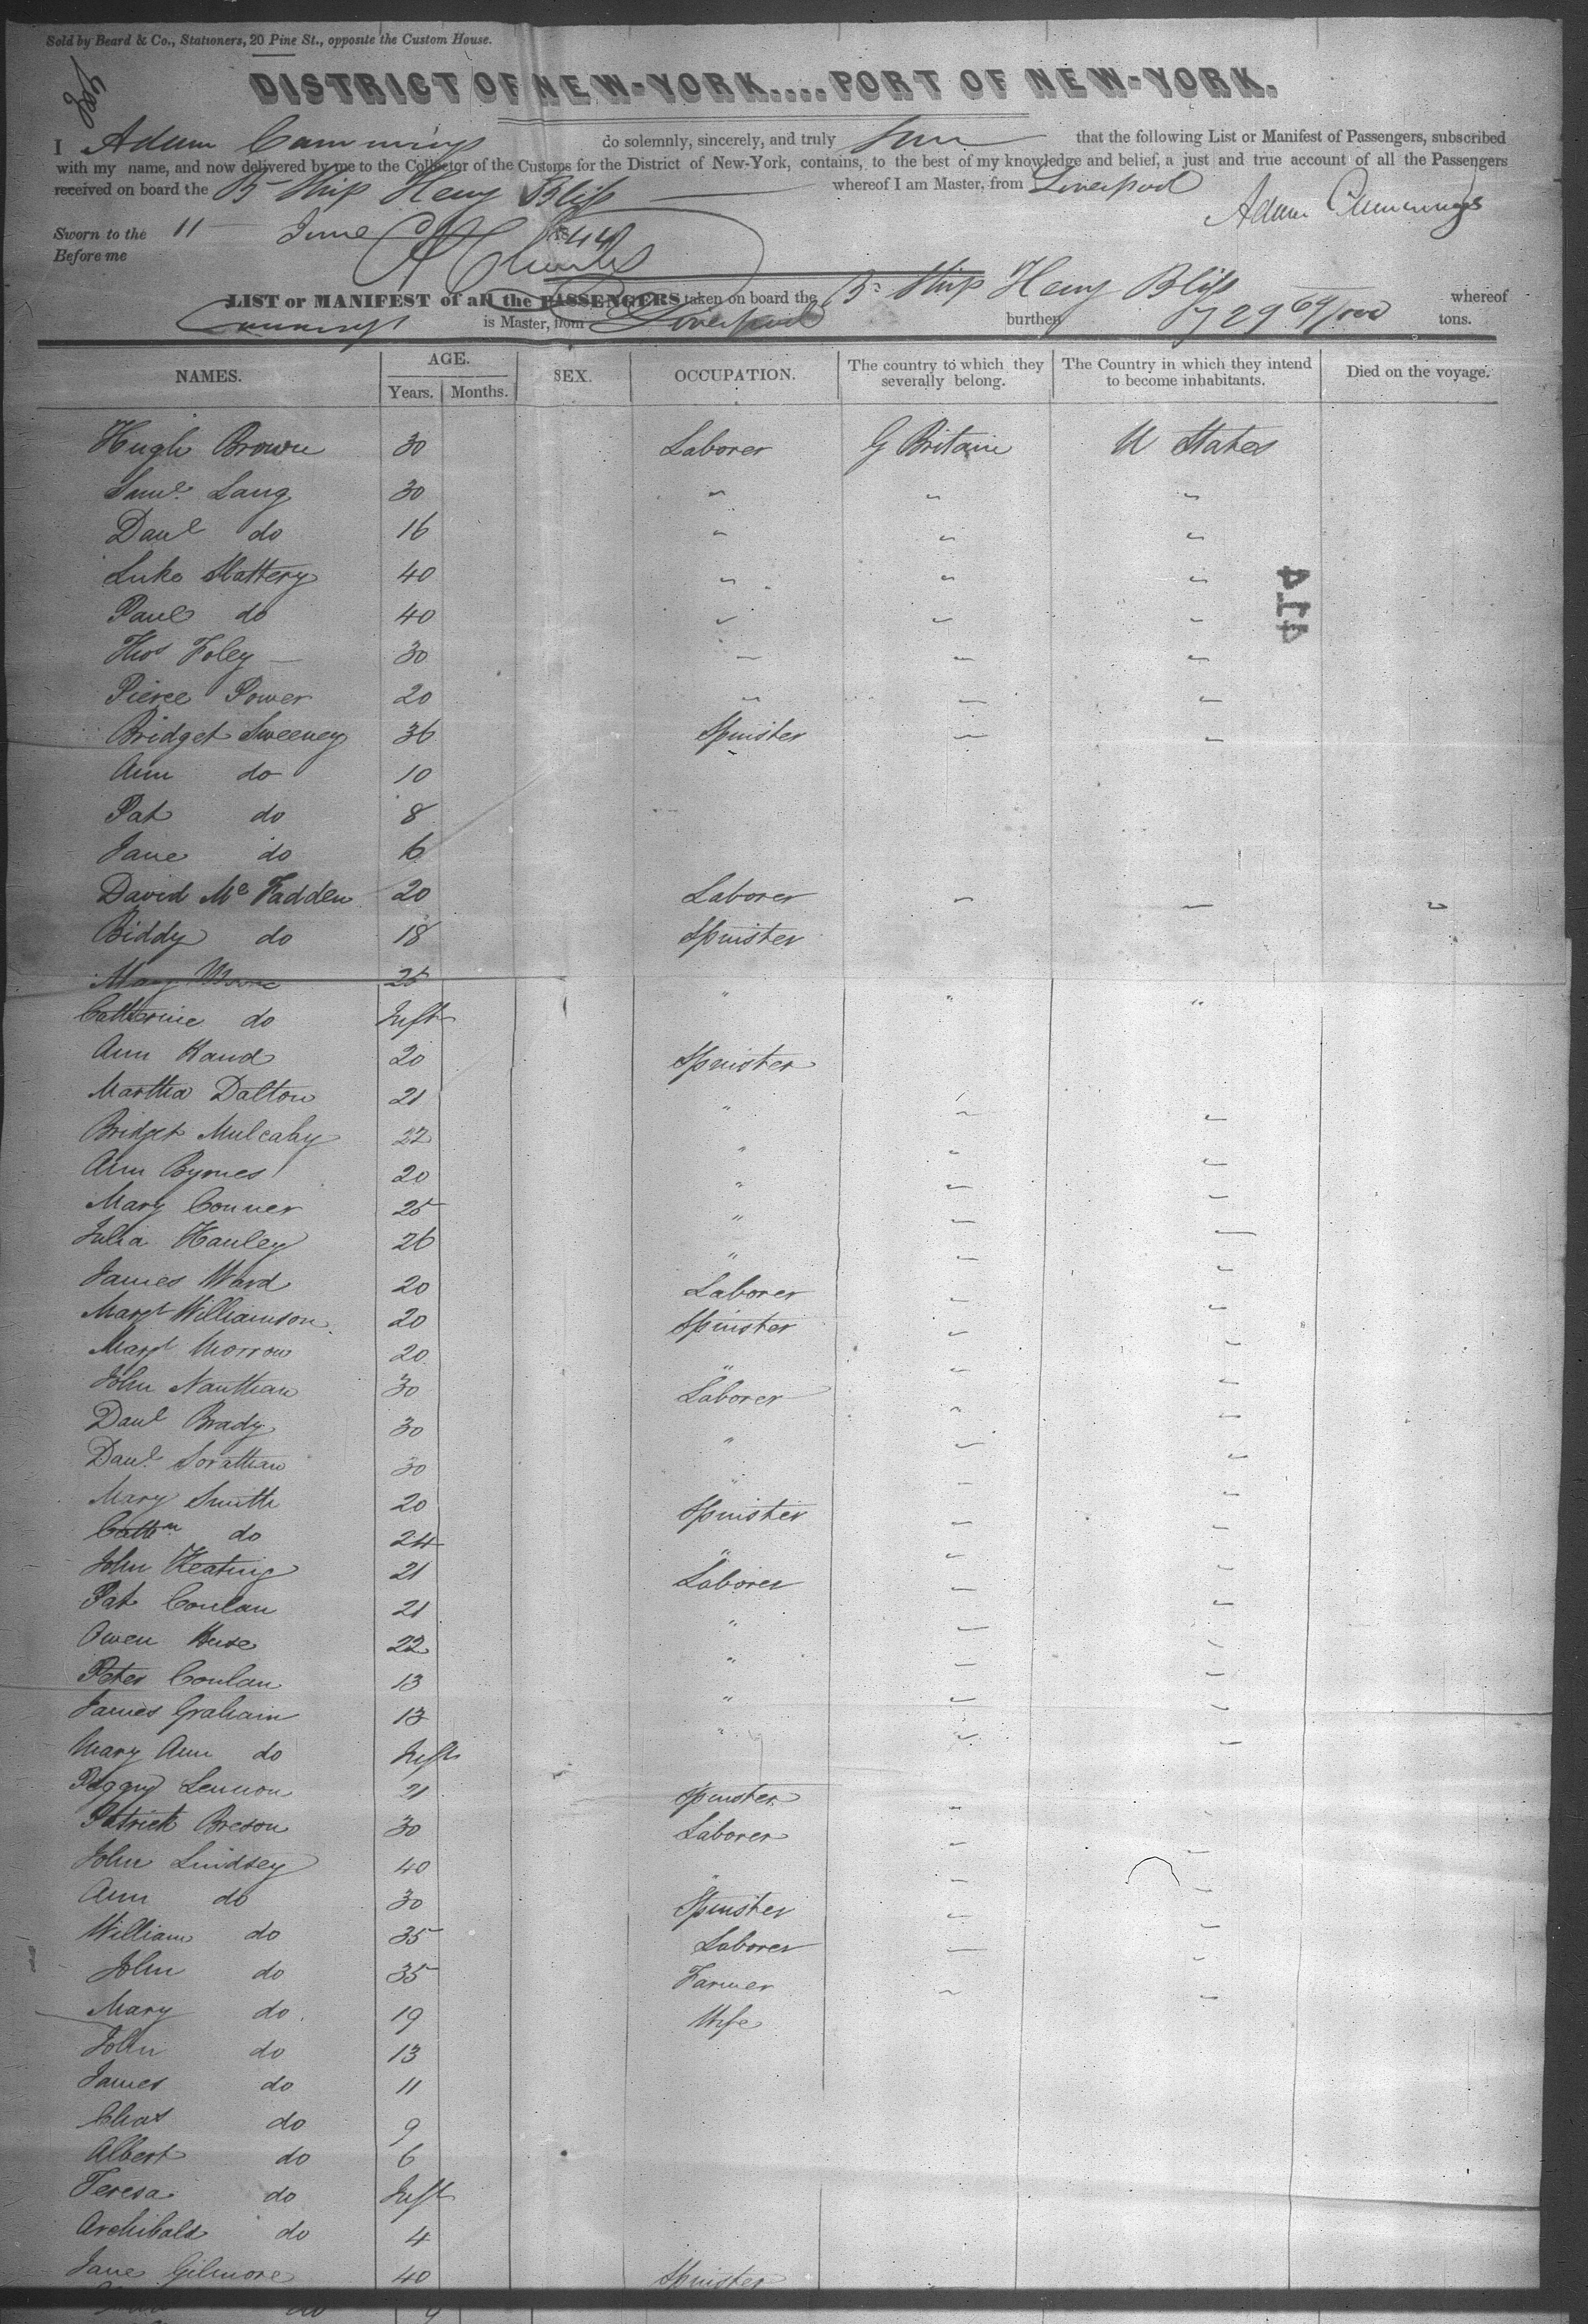 Sold by Beard & Co., Stationers, 20 Pine St., opposite the Custom House.
DISTRICT OF NEW-YORK....PORT OF NEW-YORK.
I Adam Cummings do solemnly, sincerely, and truly that the following List or Manifest of Passengers, subscribed
with my name, and now delivered by me to the Collector of the Customs for the District of New-York, contains, to the best of my knowledge and belief, a just and true account of all the Passengers
received on board the Br Ship Henry Bliss whereof I am Master, from Liverpool
Adam Cummings
Sworn to the 11 June 1844
Before me
LIST or MANIFEST of all the PASSENGERS taken on board the Br Ship Henry Bliss whereof
Cummings is Master, from Liverpool burthen 729 tons.
NAMES. AGE. SEX. OCCUPATION. The country to which they severally belong. The Country in which they intend to become inhabitants. Died on the voyage.
Years. Months.
Hugh Brown 30 Laborer G Britain U States
Saml. Lang 30 " " "
Danl do 16 " " "
Luke Slattery 40 " " "
Paul do 40 " " "
Thos Foley 30 " " "
Pierce Power 20 " " "
Bridget Sweeney 36 Spinster " "
Ann do 10
Pat do 8
Jane do 6
David Mc Fadden 20 Laborer " " "
Biddy do 18 Spinster
Mary 25 " " "
Catherine do Inft
Ann Hand 20 Spinster
Martha Dalton 21 " " "
Bridget Mulcahy 22 " " "
Ann Byrnes 20 " " "
Mary Conner 25 " " "
Julia Hanley 26 " " "
James Ward 20 Laborer " "
Margt Williamson 20 Spinster " "
Margt Morrow 20 " " "
John 30 Laborer " "
Danl Brady 30 " " "
Danl. 30 " " "
Mary Smith 20 Spinster " "
Cathn do 24 " " "
John Keating 21 Laborer " "
Pat Conlan 21 " " "
Owen 22 " " "
Peter Conlan 13 " " "
James Graham 13 " " "
Mary Ann do Inft
Peggy Lennon 21 Spinster "
Patrick 30 Laborer " "
John Lindsey 40 " " "
Ann do 30 Spinster " "
William do 35 Laborer " "
John do 35 Farmer " "
Mary do 19 Wife
John do 13
James do 11
Chas do 9
Albert do 6
Teresa do Inft
Archibald do 4
Jane Gilmore 40 Spinster
do
414